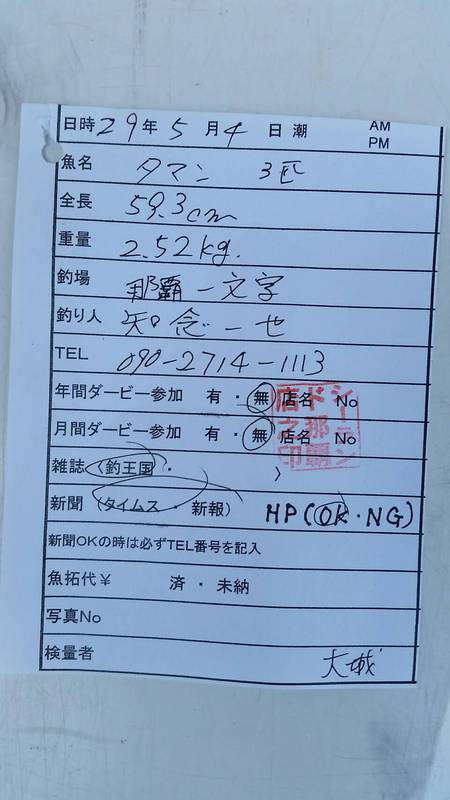 日時 29年 5月 4日 潮 AM PM
魚名 タマン 3匹
全長 59.3cm
重量 2.52kg.
釣場 那覇一文字
釣り人 知念一也
TEL 090-2714-1113
年間ダービー参加 有・無 店名 No
月間ダービー参加 有・無 店名 No
シーランド那覇店之印
雑誌(釣王国・ )
新聞(タイムス・新報) HP(OK・NG)
新聞OKの時は必ずTEL番号を記入
魚拓代¥ 済・未納
写真No
検量者 大城